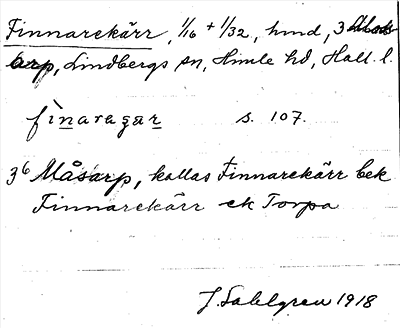 Finnarekärr, 1/16 + 1/32, hmd, 3
arp, Lindbergs sn, Himle hd, Hall. l.
fìnaragar s. 107.
36 Måsarp, kallas Finnarekärr bek
Finnarekärr ek Torpa
J. Sahlgren 1918